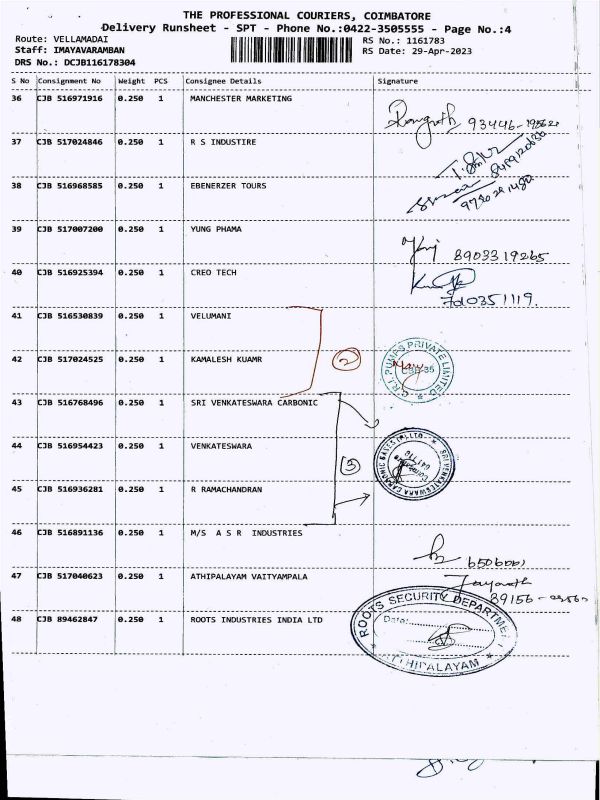 THE PROFESSIONAL COURIERS, COIMBATORE
Delivery Runsheet - SPT - Phone No.:0422-3505555 - Page No.:4
Route: VELLAMADAI
RS No.: 1161783
Staff: IMAYAVARAMBAN
RS Date: 29-Apr-2023
DRS No.: DCJB116178304
S No Consignment No Weight PCS Consignee Details Signature
36 CJB 516971916 0.250 1 MANCHESTER MARKETING
93446-
37 CJB 517024846 0.250 1 R S INDUSTIRE
38 CJB 516968585 0.250 1 EBENERZER TOURS
39 CJB 517007200 0.250 1 YUNG PHAMA
8903319265
40 CJB 516925394 0.250 1 CREO TECH
7010351119.
41 CJB 516530839 0.250 1 VELUMANI
42 CJB 517024525 0.250 1 KAMALESH KUAMR
2
C.R.I. PUMPS PRIVATE LIMITED
CSD-35
43 CJB 516768496 0.250 1 SRI VENKATESWARA CARBONIC
44 CJB 516954423 0.250 1 VENKATESWARA
3
SRI VENKATESWARA CARBONIC GASES (P) LTD.
Coimbatore
641 110
45 CJB 516936281 0.250 1 R RAMACHANDRAN
46 CJB 516891136 0.250 1 M/S A S R INDUSTRIES
47 CJB 517040623 0.250 1 ATHIPALAYAM VAITYAMPALA
89156-
48 CJB 89462847 1 ROOTS INDUSTRIES INDIA LTD
0.250
ROOTS SECURITY DEPARTMENT
Date:
ATHIPALAYAM